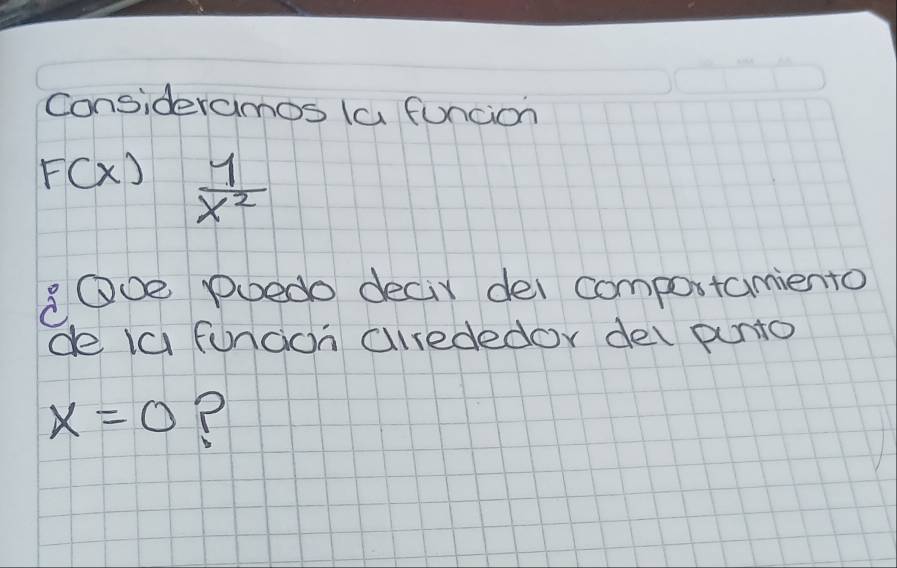 Consideramos la función
F(x) 1/x²
¿Que puedo decir del comportamiento
de la función alrededor del punto
x = 0?